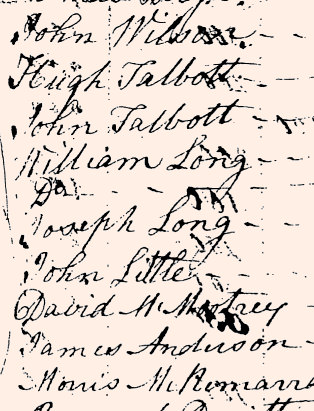 John Wilson
Hugh Talbott
John Talbott
William Long
Do
Joseph Long
John Little
David McMurtrey
James Anderson
Morris McRomarra